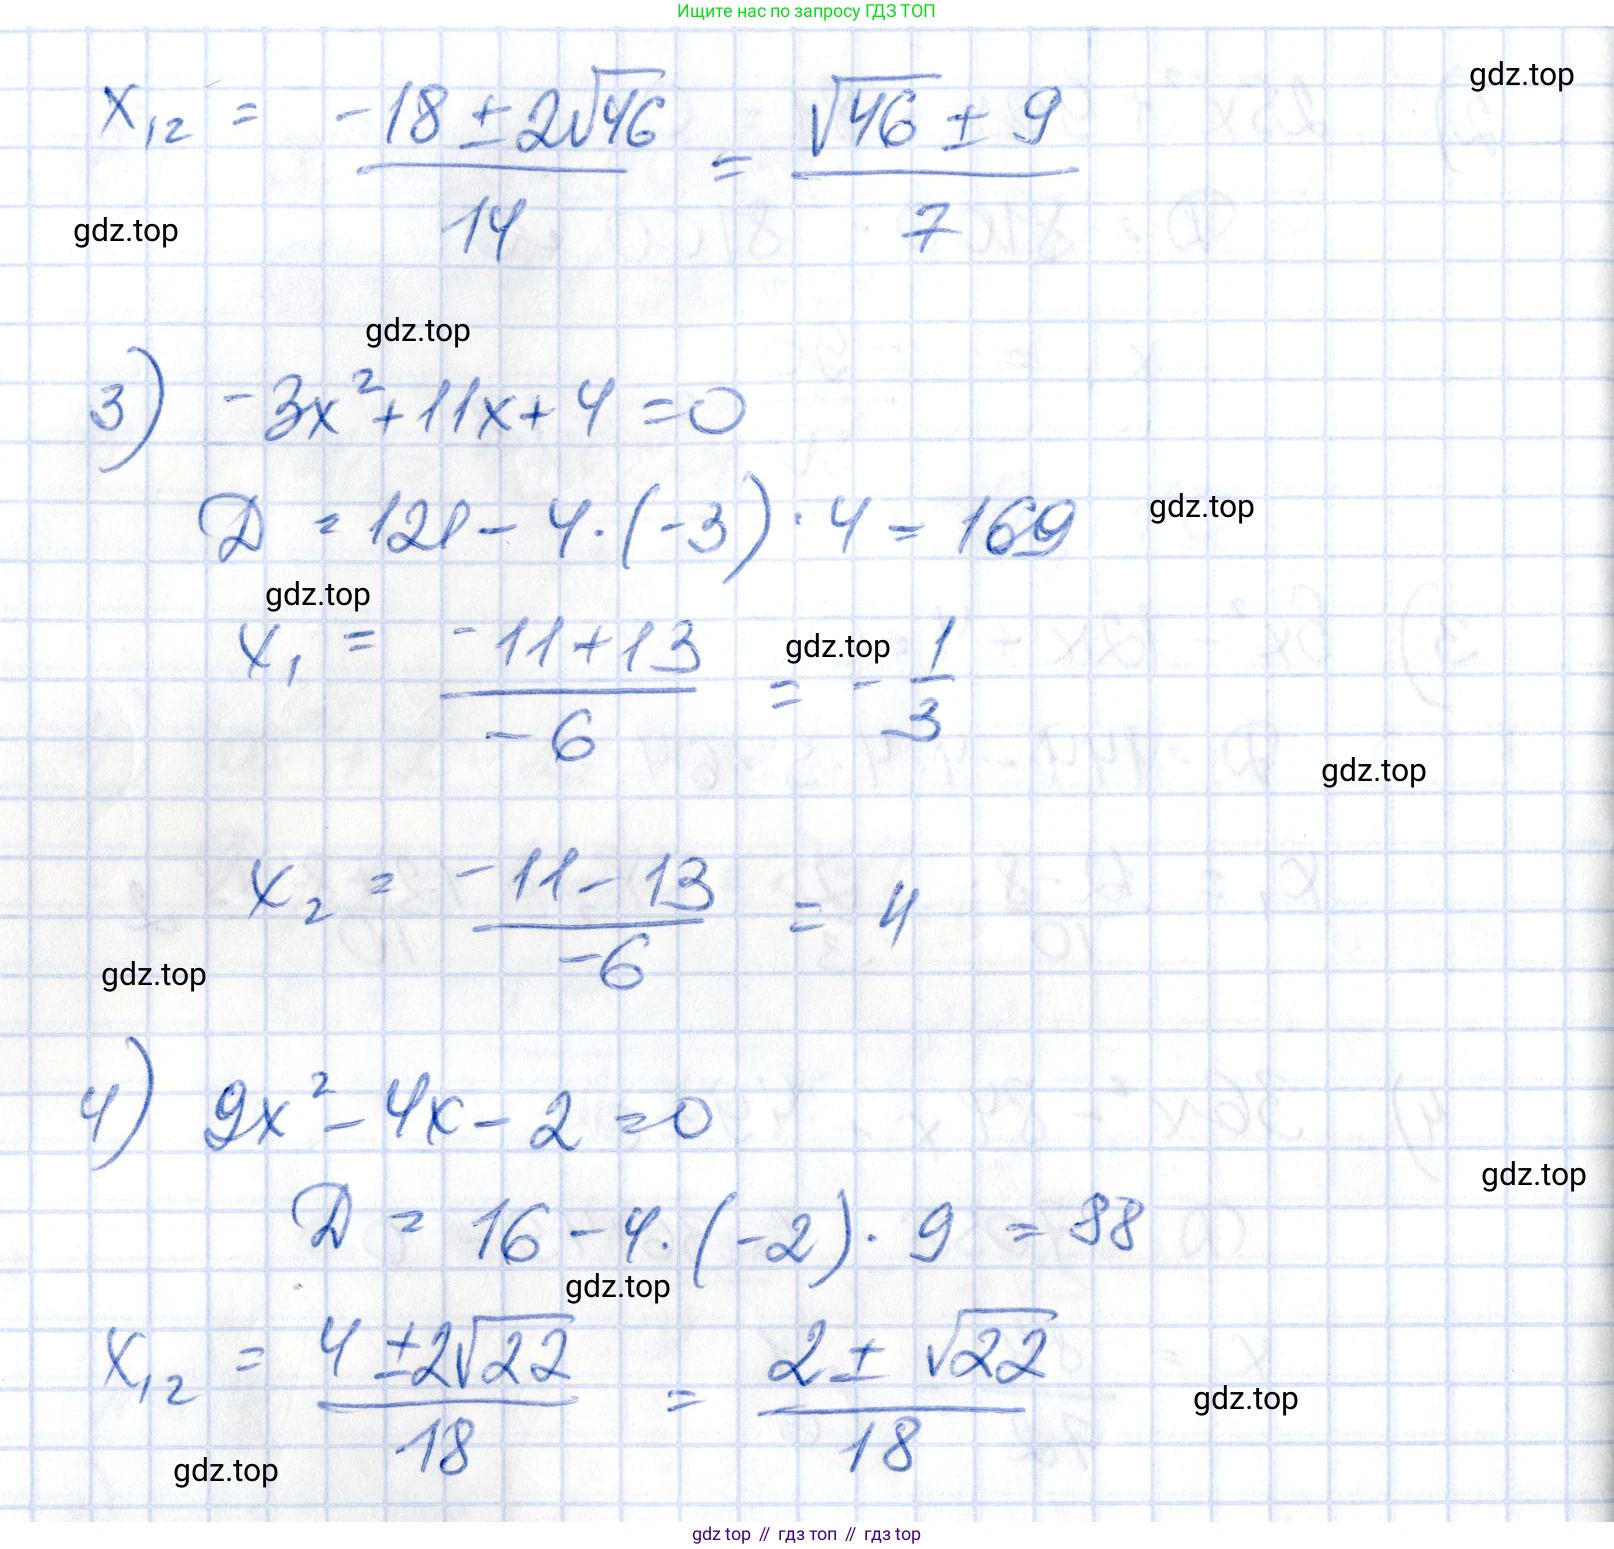 Ищите нас по запросу ГДЗ ТОП
gdz.top
x₁₂ = (-18 ± 2√46)/14 = (√46 ± 9)/7
gdz.top
gdz.top
3) -3x² + 11x + 4 = 0
D = 121 - 4 · (-3) · 4 = 169
gdz.top
gdz.top
x₁ = (-11 + 13)/(-6) = -1/3
gdz.top
gdz.top
x₂ = (-11 - 13)/(-6) = 4
gdz.top
4) 9x² - 4x - 2 = 0
gdz.top
D = 16 - 4 · (-2) · 9 = 88
gdz.top
x₁₂ = (4 ± 2√22)/18 = (2 ± √22)/18
gdz.top
gdz.top
gdz top // гдз топ // гдз top